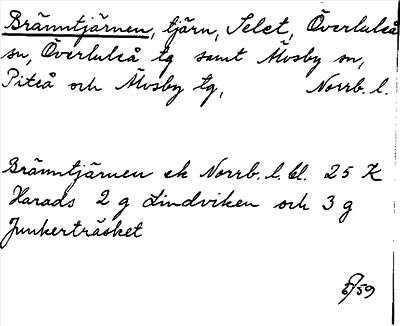 Brännтjärnen, tjärn, Selet, Överluleå
sn, Överluleå tg samt Älvsby sn,
Piteå och Älvsby tg, Norrb. l.
Brännтjärnen ek Norrb. l. bl. 25 K
Harads 2 g Lindviken och 3 g
Junkerträsket
/59